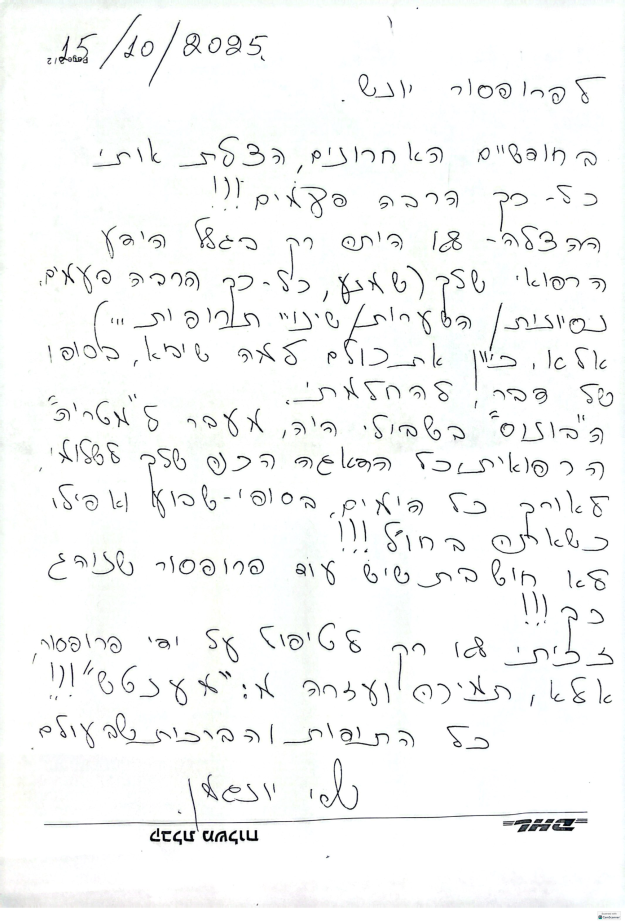 15/10/2025.
לפרופסור יונש.
בחודשיים האחרונים, הצלת אותי
כל-כך הרבה פעמים!!!
ההצלה- לא היתה רק בגלל הידע
הרפואי שלך (שמנע, כל-כך הרבה פעמים,
נסיונות/ הטעויות/ שינויי תרופות...)
אלא, כיוון את כולם למה שיביא, בסופו
של דבר, להחלמתי.
ה"בונוס" בשבילי היה, מעבר ל"מטריה"
הרפואית, כל הדאגה הכנה שלך לשלומי,
לאורך כל הימים, בסופי-שבוע ואפילו
כשאתה בחו"ל!!!
לא חושבת שיש עוד פרופסור שנוהג
כך!!!
זכיתי לא רק לטיפול על ידי פרופסור,
אלא, תמיכה ועזרה מ: "מענטש"!!!
כל התודות והברכות שבעולם
יונגמן.
DHL
קבלת משלוח